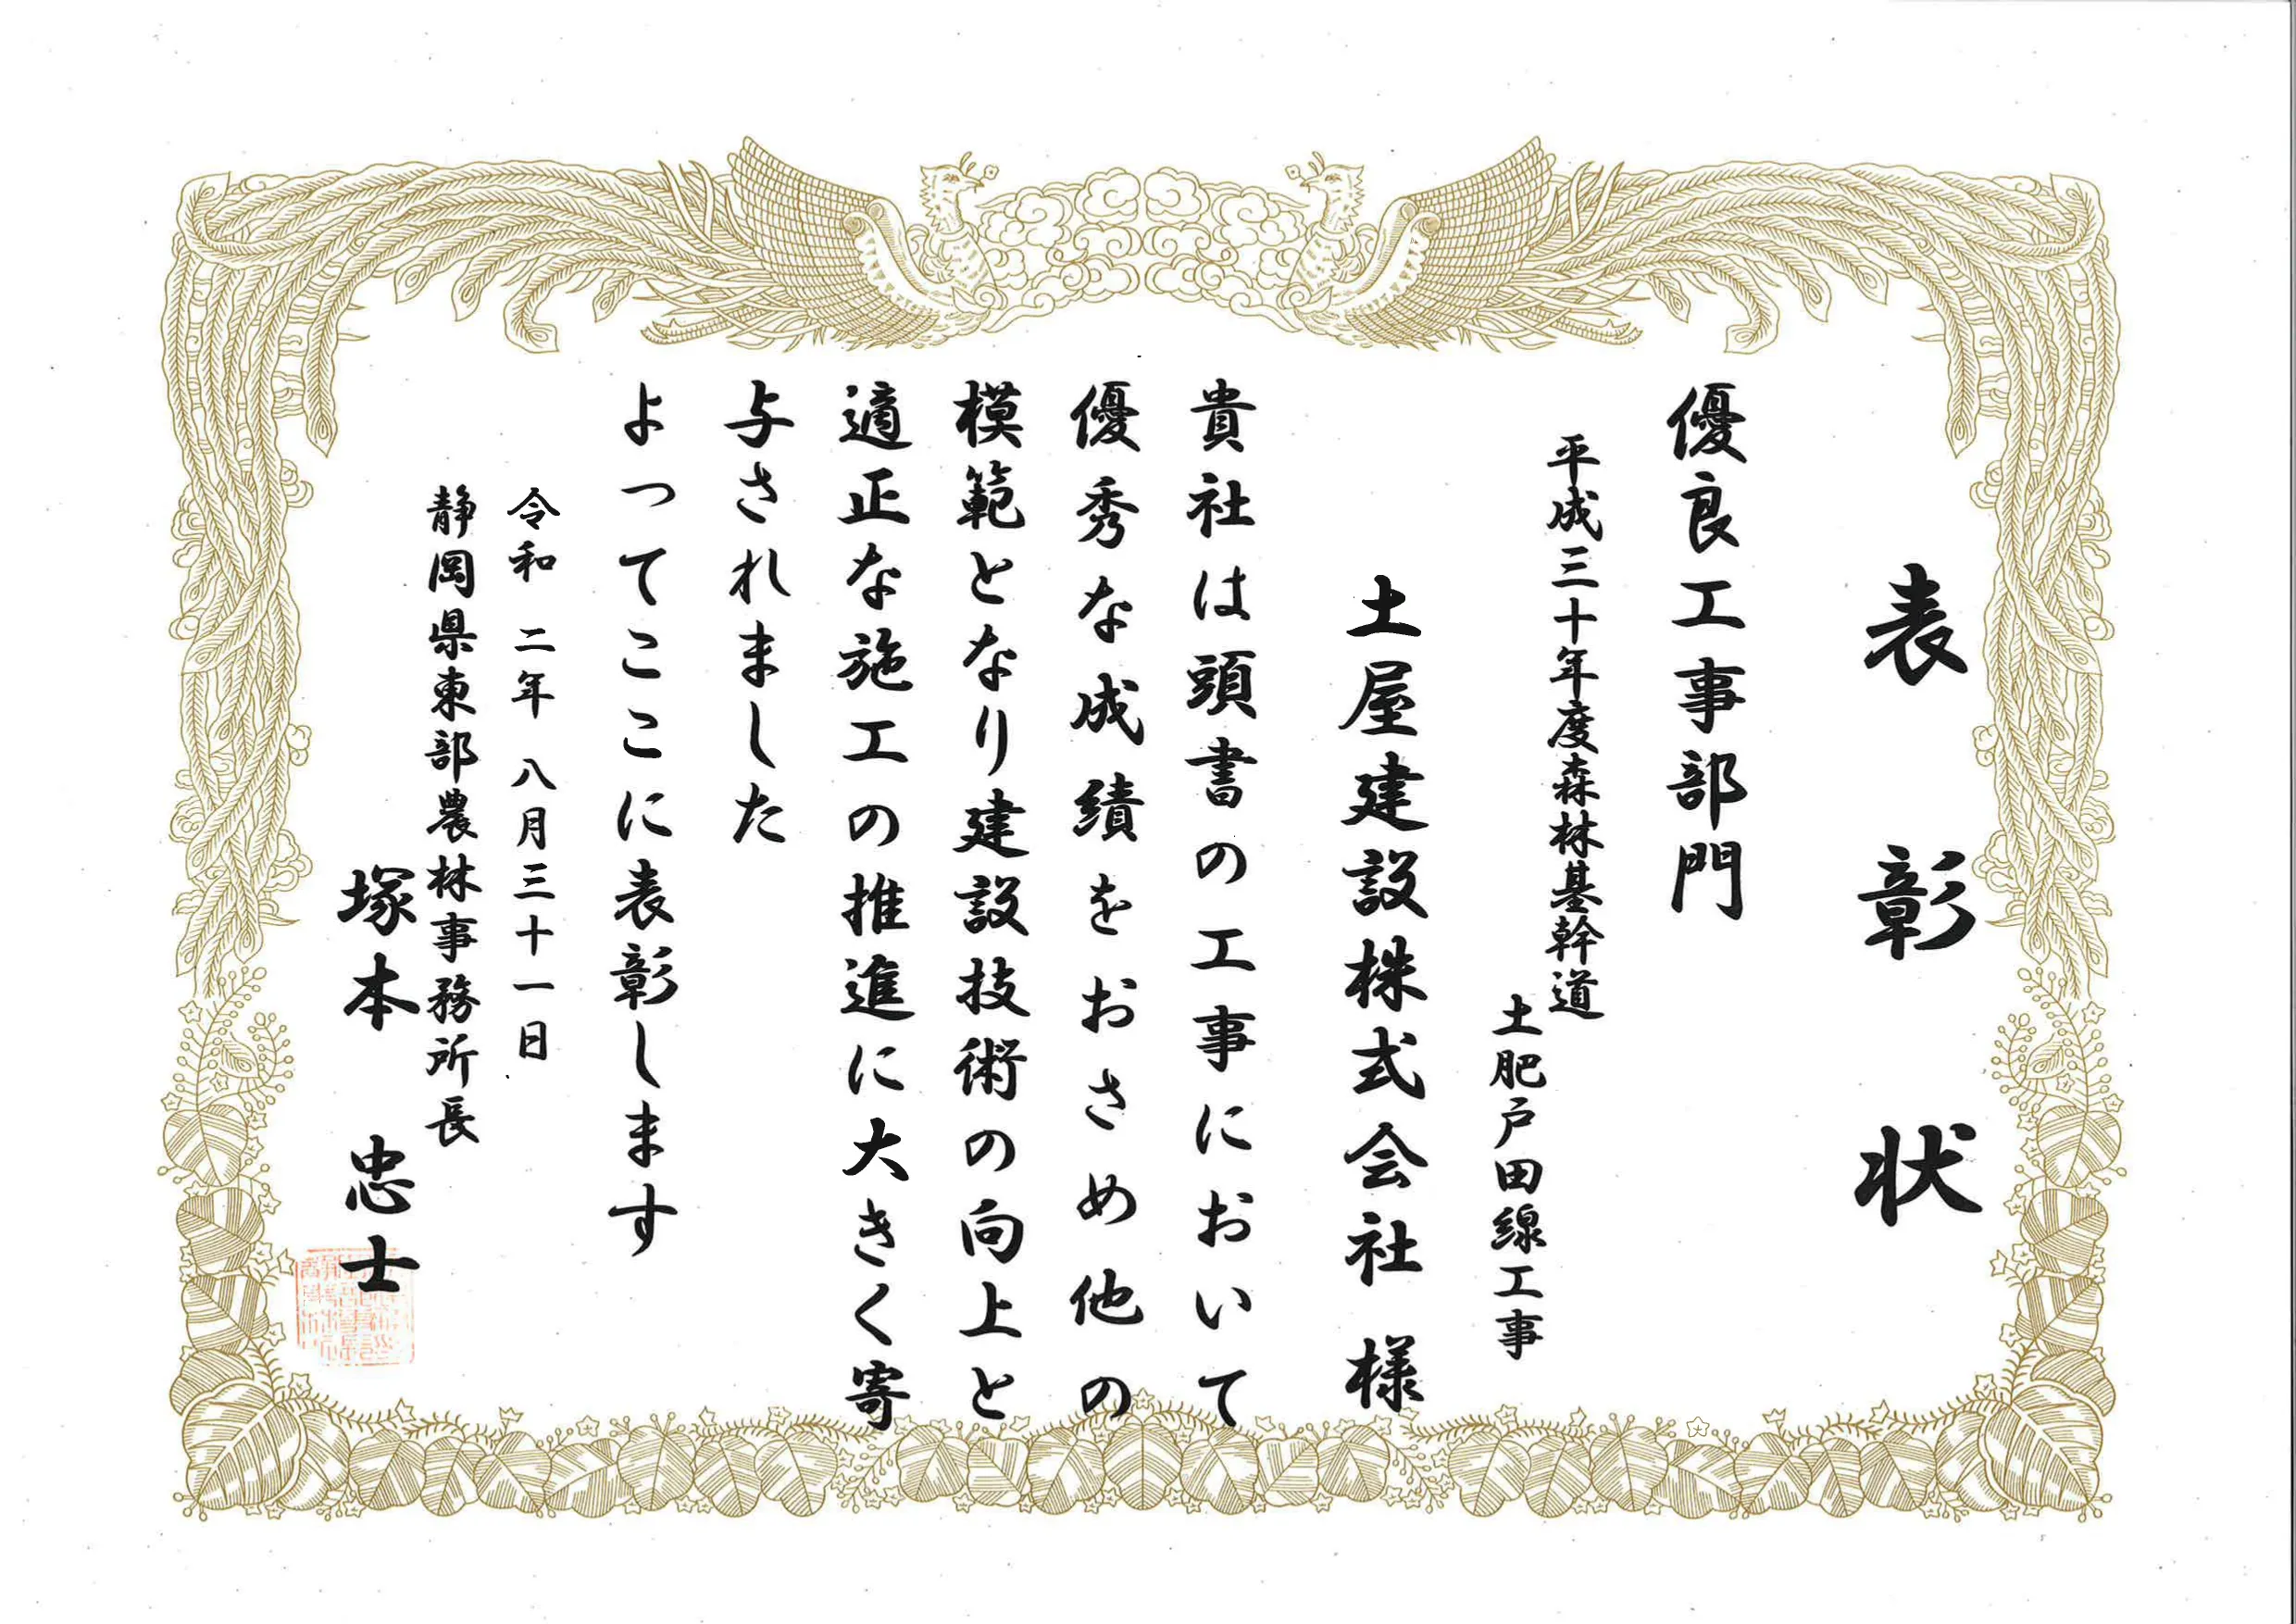 表彰状
優良工事部門
平成三十年度森林基幹道
土肥戸田線工事
土屋建設株式会社 様
貴社は頭書の工事において
優秀な成績をおさめ他の
模範となり建設技術の向上と
適正な施工の推進に大きく寄
与されました
よってここに表彰します
令和 二年 八月三十一日
静岡県東部農林事務所長
塚本 忠士